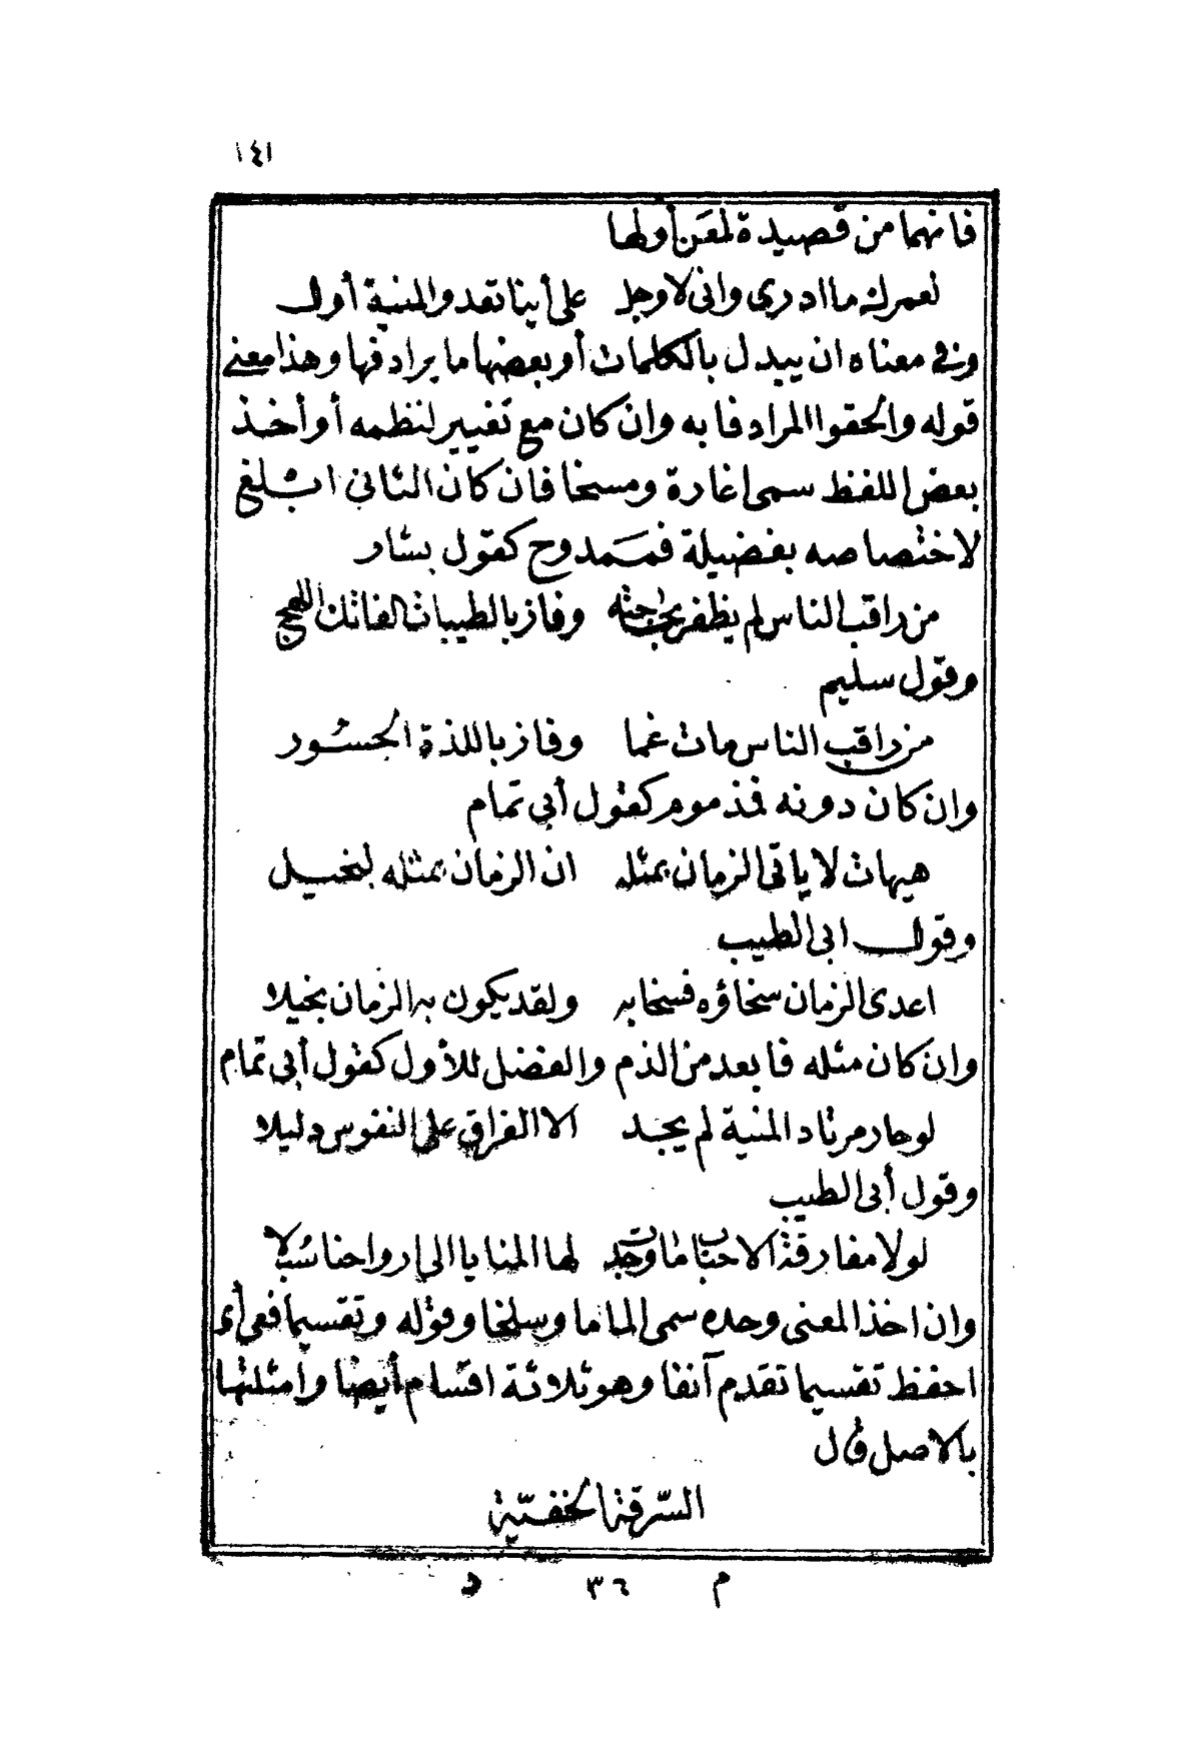 ١٤١
فانهما من قصيدة لمعَن أولها
لعمرك ما ادرى وانى لاوجل على أينا تعدو المنية أول
وفى معناه ان يبدل بالكلمات أو بعضها ما يرادفها وهذا معنى
قوله والحقوا المرادفا به وان كان مع تغيير لنظمه أو أخذ
بعض اللفظ سمى اغارة ومسخا فان كان الثانى ابلغ
لاختصاصه بفضيلة فمَمدوح كقول بشار
من راقب الناس لم يظفر بحاجته وفاز بالطيبات الفاتك اللهج
وقول سليم
من راقب الناس مات غما وفاز باللذة الجسور
وان كان دونه فمذموم كقول أبي تمام
هيهات لا ياتى الزمان بمثله ان الزمان بمثله لبخيل
وقول ابى الطيب
اعدى الزمان سخاؤه فسخا به ولقد يكون به الزمان بخيلا
وان كان مثله فابعد من الذم والفضل للأول كقول أبى تمام
لو حار مرتاد المنية لم يجد الا الفراق على النفوس دليلا
وقول أبى الطيب
لولا مفارقة الاحباب ما وجدت لها المنايا الى ارواحنا سُبلا
وان اخذ المعنى وحده سمى الماما وسلخا وقوله وتقسيما فعى أى
احفظ تقسيما تقدم آنفا وهو ثلاثة اقسام أيضا وامثلتها
بالاصل قال
السّرقة الخفيّة
م ٣٦ د